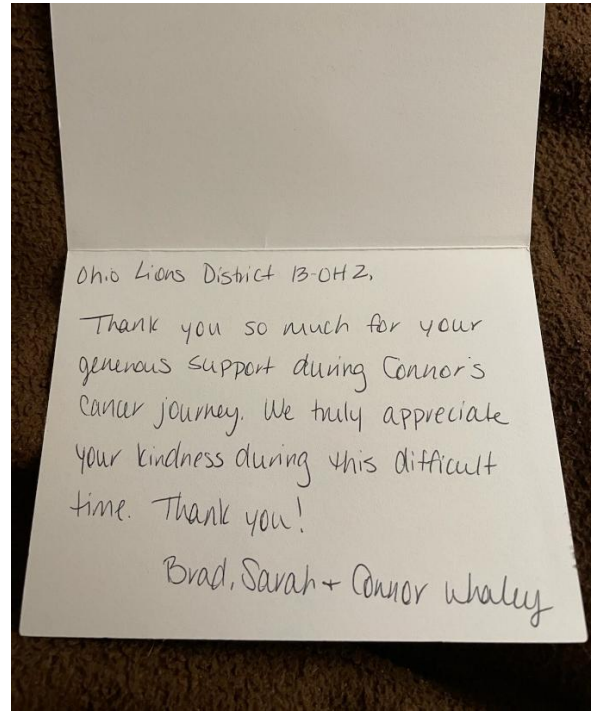 Ohio Lions District 13-OH2,
Thank you so much for your
generous support during Connor's
Cancer journey. We truly appreciate
your kindness during this difficult
time. Thank you!
Brad, Sarah + Connor Whaley